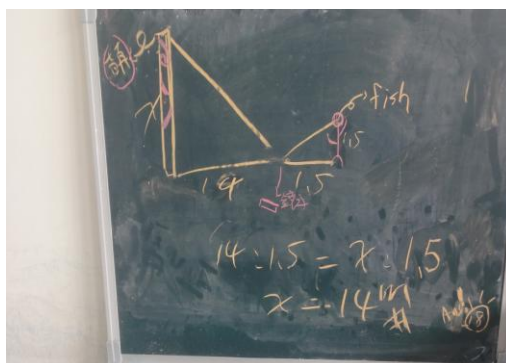 x
fish
1.5
14
1.5
14:1.5=x:1.5
x=14m
#